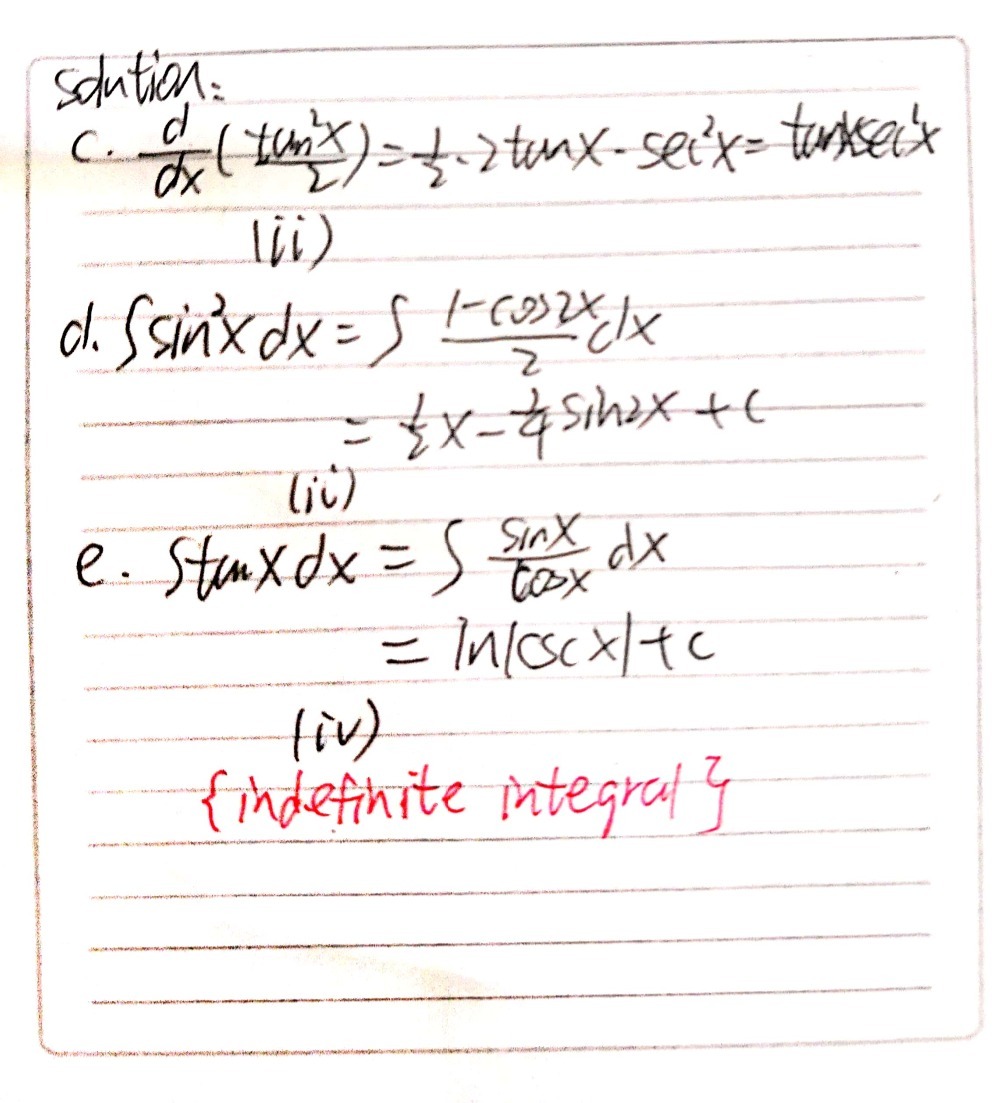 Solution:
c. d/dx (tan²x/2) = 1/2 · 2tanx · sec²x = tanxsec²x
(ii)
d. ∫sin²x dx = ∫ (1-cos2x)/2 dx
= 1/2 x - 1/4 sin2x + c
(ii)
e. ∫tanx dx = ∫ sinx/cosx dx
= ln|cscx| + c
(iv)
{indefinite integral}